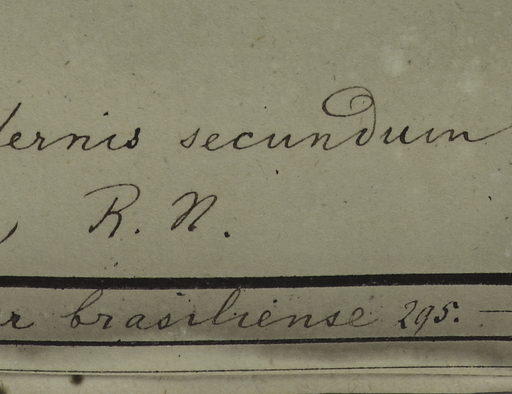 secundum
R. N.
brasiliense 295.